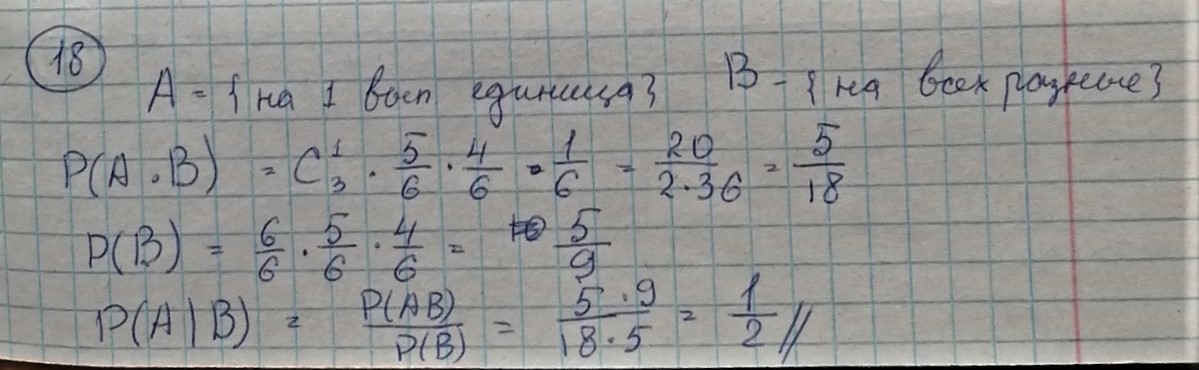 18
A = { на 1 вып единица} B - { на всех разные}
P(A . B) = C₃¹ · 5/6 · 4/6 · 1/6 = 20/2·36 = 5/18
P(B) = 6/6 · 5/6 · 4/6 = 5/9
P(A|B) = P(AB)/P(B) = 5·9/18·5 = 1/2 //